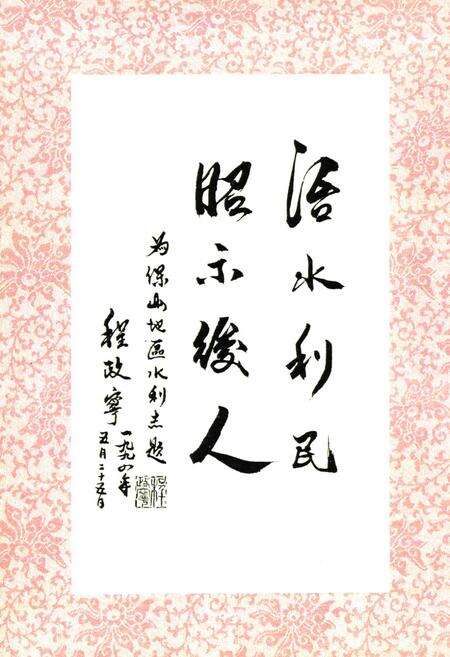 治水利民
昭示後人
为保山地區水利志题
程政寧
一九九四年
五月二十五日